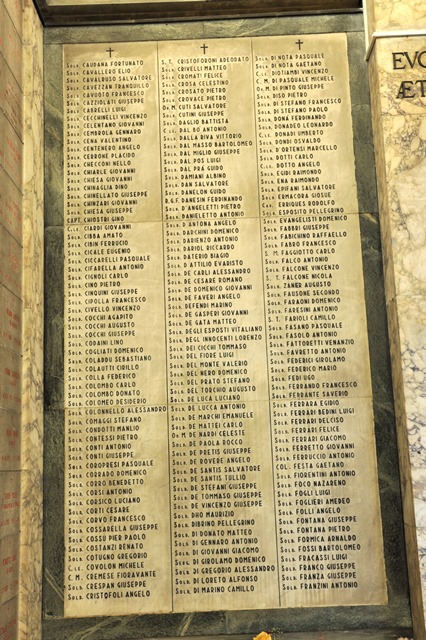 SOLD. CAUDANA FORTUNATO
SOLD. CAVALLERO ELIO
SOLD. CAVALRUSO SALVATORE
SOLD. CAVEZZAN TRANQUILLO
SOLD. CAVOSTO FRANCESCO
SOLD. CAZZIOLATI GIUSEPPE
SOLD. CABRELLI LUIGI
SOLD. CECCHINELLI VINCENZO
SOLD. CELENTANO GIOVANNI
SOLD. CEMBROLA GENNARO
SOLD. CENA VALENTINO
SOLD. CENTENERO ANGELO
SOLD. CERRONE PLACIDO
SOLD. CHECCONI NELLO
SOLD. CHIARLE GIOVANNI
SOLD. CHIESA GIOVANNI
SOLD. CHINAGLIA DINO
SOLD. CHINELLATO GIUSEPPE
SOLD. CHINZARI GIOVANNI
SOLD. CHIESA GIUSEPPE
CAPT. CHIOSTRI GINO
C.LE CIARDI GIOVANNI
SOLD. CIBBA AMATO
SOLD. CIBIN FERRUCIO
SOLD. CICALE EUGENIO
SOLD. CICCARELLI PASQUALE
SOLD. CIFARELLA ANTONIO
SOLD. CIGNOLI CARLO
SOLD. CINO PIETRO
SOLD. CINQUINI GIUSEPPE
SOLD. CIPOLLA FRANCESCO
SOLD. CIVELLO VINCENZO
SOLD. COCCHI AGAPITO
SOLD. COCCHI AUGUSTO
SOLD. COCCHI GIUSEPPE
SOLD. CODAINI LINO
SOLD. COGLIATI DOMENICO
SOLD. COLABDU SEBASTIANO
SOLD. COLAUTTI CIRILLO
SOLD. COLLA FEDERICO
SOLD. COLOMBO CARLO
SOLD. COLOMBO DONATO
SOLD. COLOMEO DESIDERIO
SOLD. COLONNELLO ALESSANDRO
SOLD. COMAGGI STEFANO
SOLD. CONDOTTI MANLIO
SOLD. CONTESSI PIETRO
SOLD. CONTI ANTONIO
SOLD. CONTI GIUSEPPE
SOLD. COROPRESI PASQUALE
SOLD. CORRADO DOMENICO
SOLD. CORRO BENEDETTO
SOLD. CORSI ANTONIO
SOLD. CORSICO LUCIANO
SOLD. CORTI CESARE
SOLD. CORVO FRANCESCO
SOLD. COSSARELLA GIUSEPPE
SOLD. COSSU PIER PAOLO
SOLD. COSTANZI RENATO
SOLD. COTUGNO GREGORIO
C.LE COVOLON MICHELE
C. M. CREMESE FIORAVANTE
SOLD. CRESPAN GIUSEPPE
SOLD. CRISTOFOLI ANGELO
S. T. CRISTOFORONI ADEODATO
SOLD. CRIVELLI MATTEO
SOLD. CROMATI FELICE
SOLD. CROSA CELESTINO
SOLD. CROSATO PIETRO
SOLD. CROVACE PIETRO
SOLD. CUTI SALVATORE
SOLD. CUTINI GIUSEPPE
SOLD. DAGLIO BATTISTA
C.LE DAL BO ANTONIO
SOLD. DALLA RIVA VITTORIO
SOLD. DAL MASSO BARTOLOMEO
SOLD. DAL MIGLIO GIUSEPPE
SOLD. DAL POS LUIGI
SOLD. DAL PRÀ GUIDO
SOLD. DAMIANI ALBINO
SOLD. DAN SALVATORE
SOLD. DANELON GUIDO
DANESIN FERDINANDO
SOLD. D'ANGELETTI PIETRO
SOLD. DANIELETTO ANTONIO
SOLD. D'ANTONA ANGELO
SOLD. DARCHINI DOMENICO
SOLD. DARIENZO ANTONIO
SOLD. DARIOL RICCARDO
SOLD. DATERIO BIAGIO
SOLD. D'ATTILIO EVARISTO
SOLD. DE CARLI ALESSANDRO
SOLD. DE CESARE ROMANO
SOLD. DE DOMENICO GIOVANNI
SOLD. DE FAVERI ANGELO
SOLD. DEFENDI MARINO
SOLD. DE GASPERI GIOVANNI
SOLD. DE GATA MATTEO
SOLD. DEGLI ESPOSTI VITALIANO
SOLD. DEGL INNOCENTI LORENZO
SOLD. DEI CICCHI TOMMASO
SOLD. DEL FIORE LUIGI
SOLD. DEL MONTE VALERIO
SOLD. DEL NERO DOMENICO
SOLD. DEL PRATO STEFANO
SOLD. DEL TORCHIO AUGUSTO
SOLD. DE LUCA LUCIANO
SOLD. DE LUCCA ANTONIO
SOLD. DE MARCHI EMANUELE
SOLD. DE MATTEI CARLO
DE NARDI CELESTE
SOLD. DE PAOLA ROCCO
SOLD. DE PRETIS GIUSEPPE
SOLD. DE ROVERE ANGELO
SOLD. DE SANTIS SALVATORE
SOLD. DE SANTIS TULLIO
SOLD. DE STEFANI GIUSEPPE
SOLD. DE TOMMASO GIUSEPPE
SOLD. DE VINCENZO GIUSEPPE
SOLD. DHO MAURIZIO
SOLD. DIBRINO PELLEGRINO
SOLD. DI DONATO MATTEO
SOLD. DI GENNARO ANTONIO
SOLD. DI GIOVANNI GIACOMO
SOLD. DI GIROLAMO DOMENICO
SOLD. DI GREGORIO ALESSANDRO
SOLD. DI LORETO ALFONSO
SOLD. DI MARINO CAMILLO
SOLD. DI NOTA PASQUALE
SOLD. DI NOTA GAETANO
C.LE DIOTIAMBI VINCENZO
C. M. DI PASQUALE MICHELE
DI PINTO GIUSEPPE
SOLD. DISO PIETRO
SOLD. DI STEFANO FRANCESCO
SOLD. DI STEFANO PAOLO
SOLD. DONÀ FERDINANDO
SOLD. DONADEO LEONARDO
C.LE DONADI UMBERTO
SOLD. DONDI OSVALDO
SOLD. D'ORTENSI MARCELLO
SOLD. DOTTI CARLO
C.LE DOTTO ANGELO
SOLD. EGIDI RAIMONDO
SOLD. ENA RAIMONDO
SOLD. EPIFANI SALVATORE
SOLD. ERMACORA GIOSUE
ERRIQUES RODOLFO
SOLD. ESPOSITO PELLEGRINO
SOLD. EVANGELISTI DOMENICO
SOLD. FABBRI GIUSEPPE
SOLD. FABICHINO RAFFAELLO
SOLD. FABRO FRANCESCO
S. M. FAGGIOTTO CARLO
SOLD. FALCO ANTONIO
SOLD. FALCONE VINCENZO
S. T. FALCONE NICOLA
SOLD. ZANER AUGUSTO
SOLD. FAUSONE SECONDO
SOLD. FARAONI DOMENICO
SOLD. FARESINI ANTONIO
S. T. FARIOLI CAMILLO
SOLD. FASANO PASQUALE
SOLD. FASOLO ANTONIO
SOLD. FATTORETTI VENANZIO
SOLD. FAVRETTO ANTONIO
SOLD. FEDERICI GIROLAMO
SOLD. FEDERICO MARIO
SOLD. FEDI UGO
SOLD. FERRANDO FRANCESCO
SOLD. FERRANTE SAVERIO
SOLD. FERRARA EGIDIO
SOLD. FERRARI BEDINI LUIGI
SOLD. FERRARI DELCISO
SOLD. FERRARI FELICE
SOLD. FERRARI GIACOMO
SOLD. FERRETTO GIOVANNI
SOLD. FERRUCCIO ANTONIO
COL. FESTA GAETANO
SOLD. FIORENTINI ANTONIO
SOLD. FOCO NAZARENO
SOLD. FOGLI LUIGI
SOLD. FOGLIERI AMEDEO
SOLD. FOLLI ANGELO
SOLD. FONTANA GIUSEPPE
SOLD. FONTANA PIETRO
SOLD. FORMICA ARNALDO
SOLD. FOSSI BARTOLOMEO
SOLD. FRACASSI LUIGI
SOLD. FRANCO GIUSEPPE
SOLD. FRANZA GIUSEPPE
SOLD. FRANZINI ANTONIO